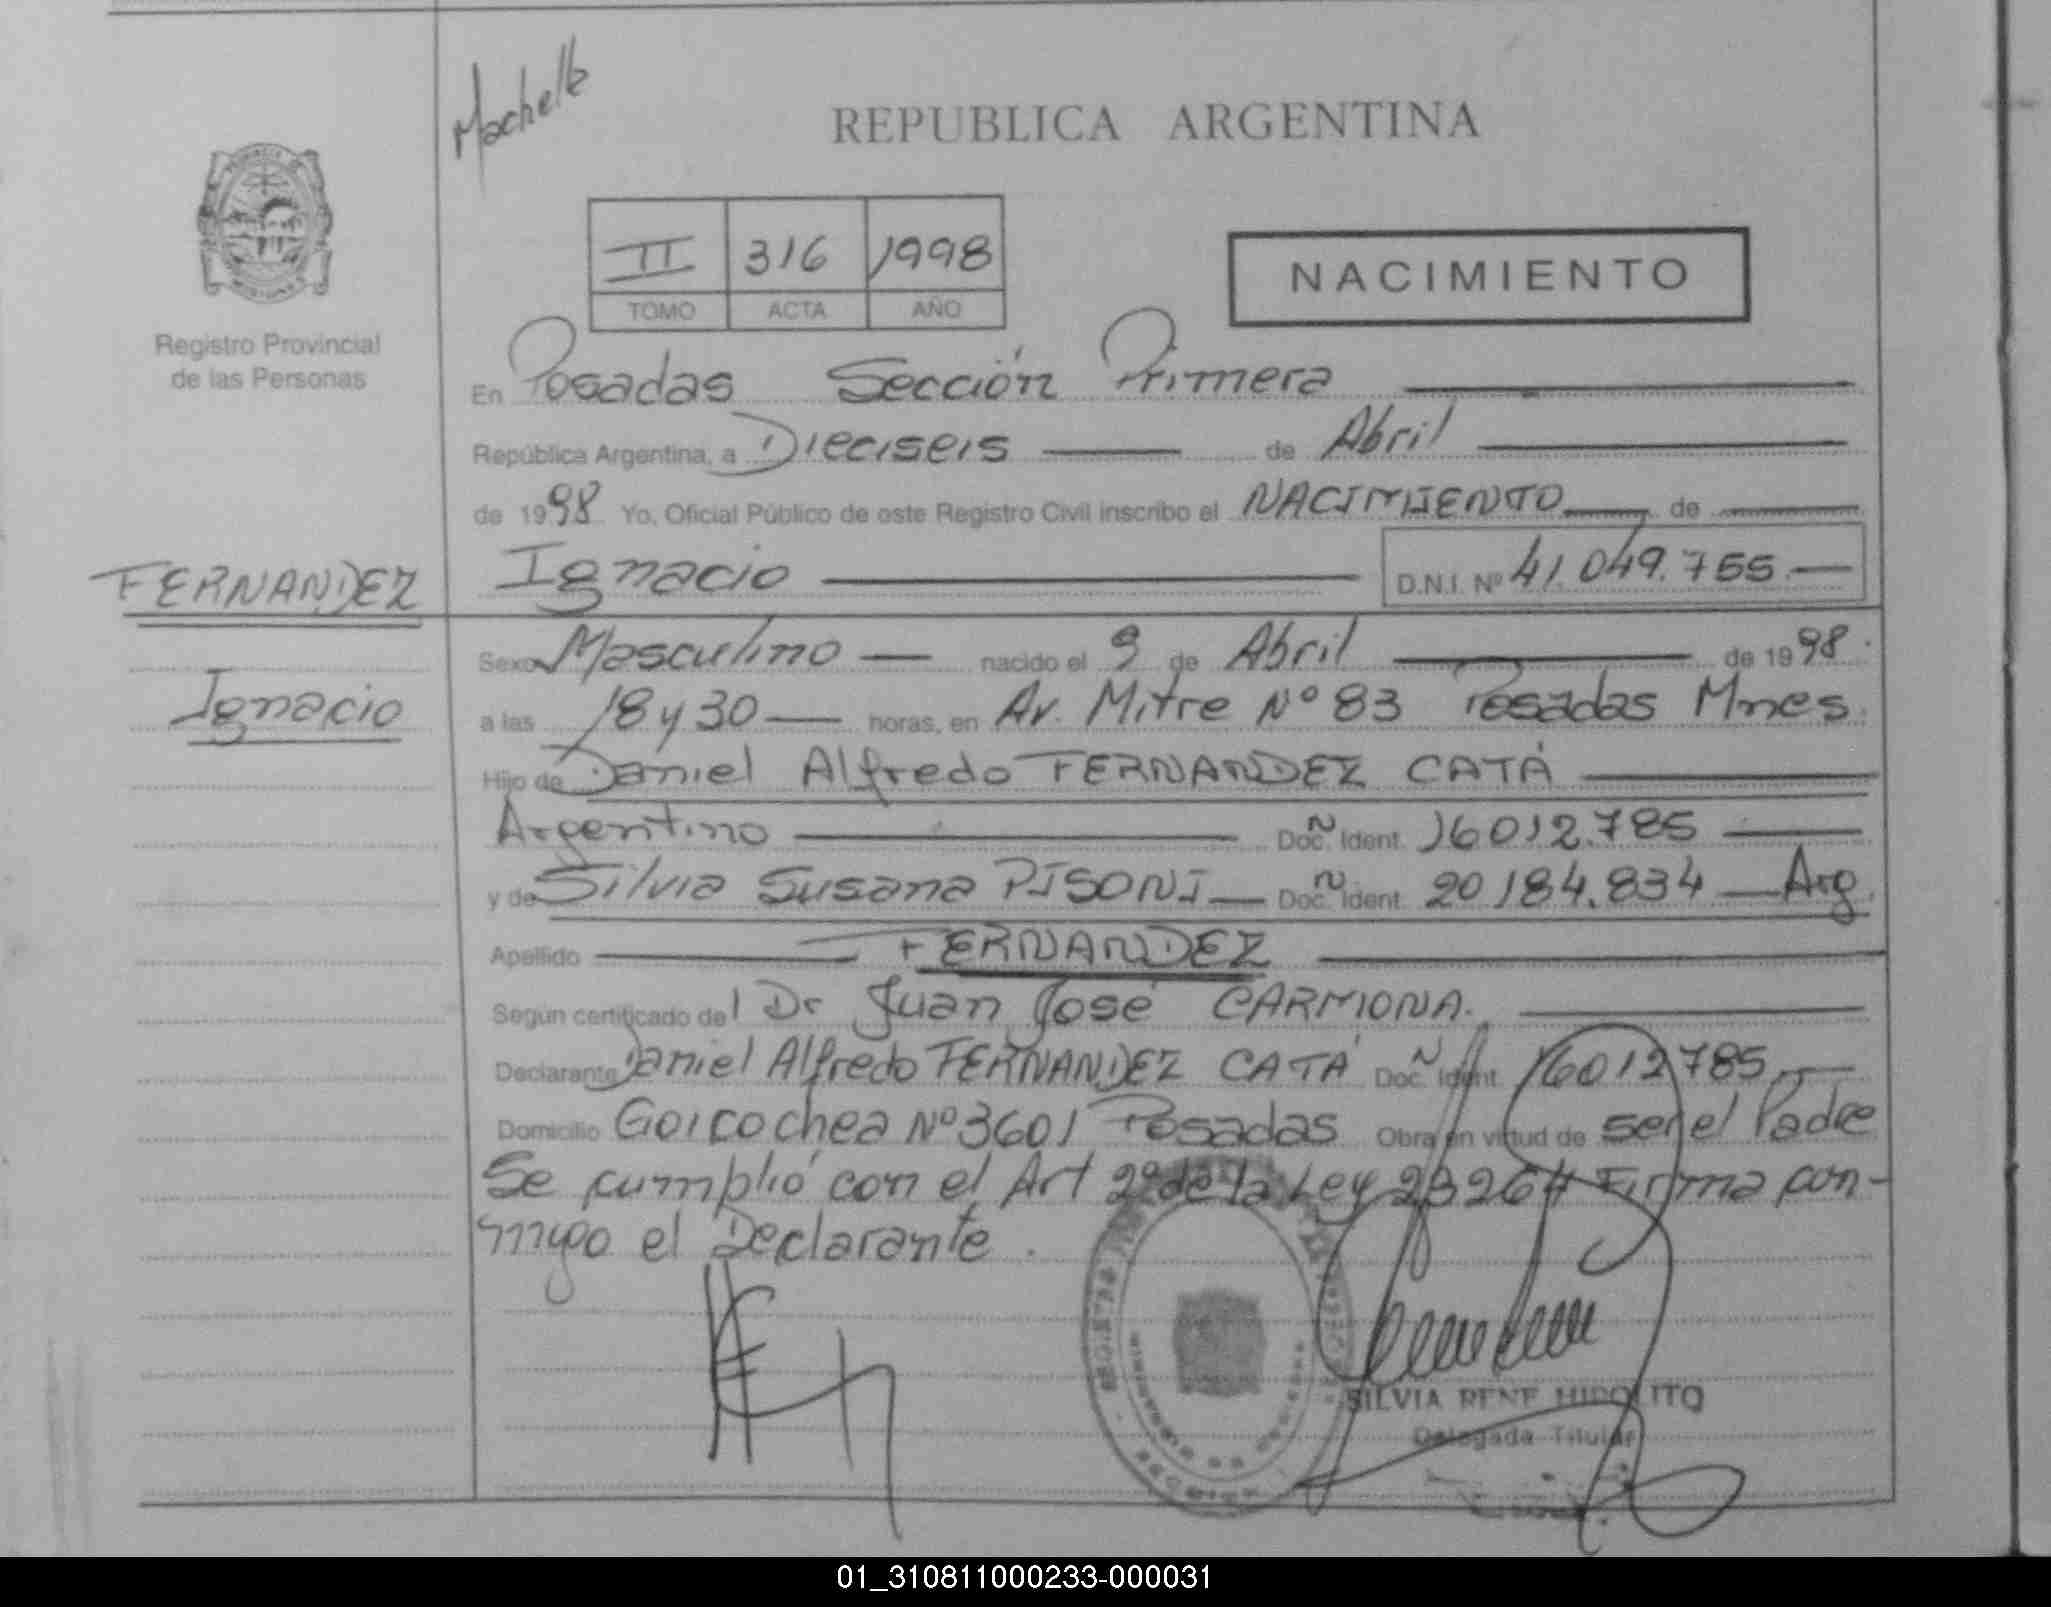 REPUBLICA ARGENTINA
II 316 1998
TOMO ACTA AÑO
NACIMIENTO
Registro Provincial
de las Personas
En Posadas Sección Primera
República Argentina, a Dieciseis de Abril
de 1998 Yo, Oficial Público de este Registro Civil inscribo el NACIMIENTO de
Ignacio D.N.I. Nº 41.049.755
FERNANDEZ
Ignacio
Sexo Masculino nacido el 9 de Abril de 1998.
a las 18 y 30 horas, en Av. Mitre Nº 83 Posadas Mnes.
Hijo de Daniel Alfredo FERNANDEZ CATÁ
Argentino Doc. Ident. 16012.785
y de Silvia Susana PISONI Doc. Ident. 20184.834 Arg.
Apellido FERNANDEZ
Según certificado del Dr Juan José CARMONA.
Declarante Daniel Alfredo FERNANDEZ CATÁ Doc. Ident. 16012785
Domicilio Goicochea Nº 3601 Posadas Obra en virtud de ser el Padre
Se cumplió con el Art 2º de la Ley 23264 Firma con-
migo el Declarante.
SILVIA RENE HIPOLITO
Delegada Titular
01_310811000233-000031